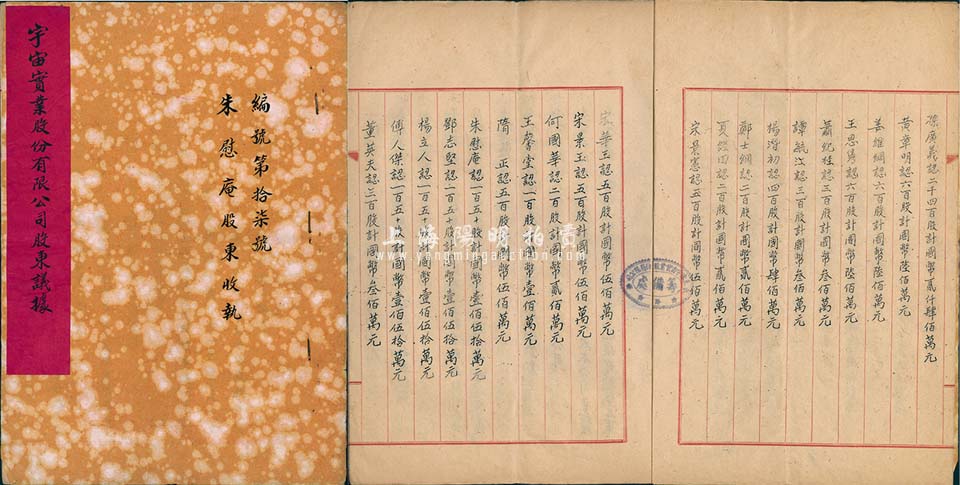 宇宙實業股份有限公司股東議據
編號第拾柒號
朱慰庵股東收執
廣義認二千四百股計國幣貳仟肆佰萬元
黃章明認六百股計國幣陸佰萬元
姜維綱認六百股計國幣陸佰萬元
王思 認六百股計國幣陸佰萬元
蕭紀桂認三百股計國幣叁佰萬元
譚毓汶認三百股計國幣叁佰萬元
楊濟初認四百股計國幣肆佰萬元
鄭士綱認二百股計國幣貳佰萬元
夏 田認二百股計國幣貳佰萬元
宋景憲認五百股計國幣伍佰萬元
宋華玉認五百股計國幣伍佰萬元
宋景玉認五百股計國幣伍佰萬元
何國華認二百股計國幣貳佰萬元
王馨堂認一百股計國幣壹佰萬元
隋 正認五百股計國幣伍佰萬元
朱慰庵認一百五十股計國幣壹佰伍拾萬元
鄧志堅認一百五十股計國幣壹佰伍拾萬元
楊立人認一百五十股計國幣壹佰伍拾萬元
傅人傑認一百五十股計國幣壹佰伍拾萬元
董英夫認三百股計國幣叁佰萬元
上海陽明拍賣
www.yangmingauction.com